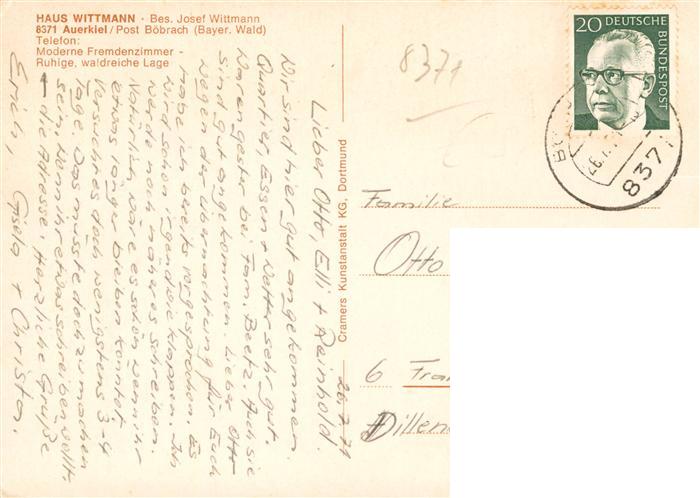 HAUS WITTMANN · Bes. Josef Wittmann
8371 Auerkiel / Post Böbrach (Bayer. Wald)
Telefon:
Moderne Fremdenzimmer -
Ruhige, waldreiche Lage
26.7.71
Lieber Otto, Elli + Reinhold.
Wir sind hier gut angekommen.
Quartier, Essen + Wetter sehr gut.
Waren gestern bei Fam. Beetz. Auch sie
sind gut angekommen. Lieber Otto
wegen der Übernachtung für Euch
habe ich bereits vorgesprochen. Es
wird schon irgendwie klappen. Ich
werde noch näheres schreiben.
Natürlich wäre es schön wenn ihr
etwas länger bleiben könntet.
Versucht es doch wenigstens 3-4
Tage. Das müsste doch zu machen
sein. Wenn ihr etwas schreiben wollt
die Adresse. Herzliche Grüße
Erich, Gisela + Christa.
Cramers Kunstanstalt KG. Dortmund
8371
20 DEUTSCHE
BUNDESPOST
837
Familie
Otto
6 Fra
Dillen